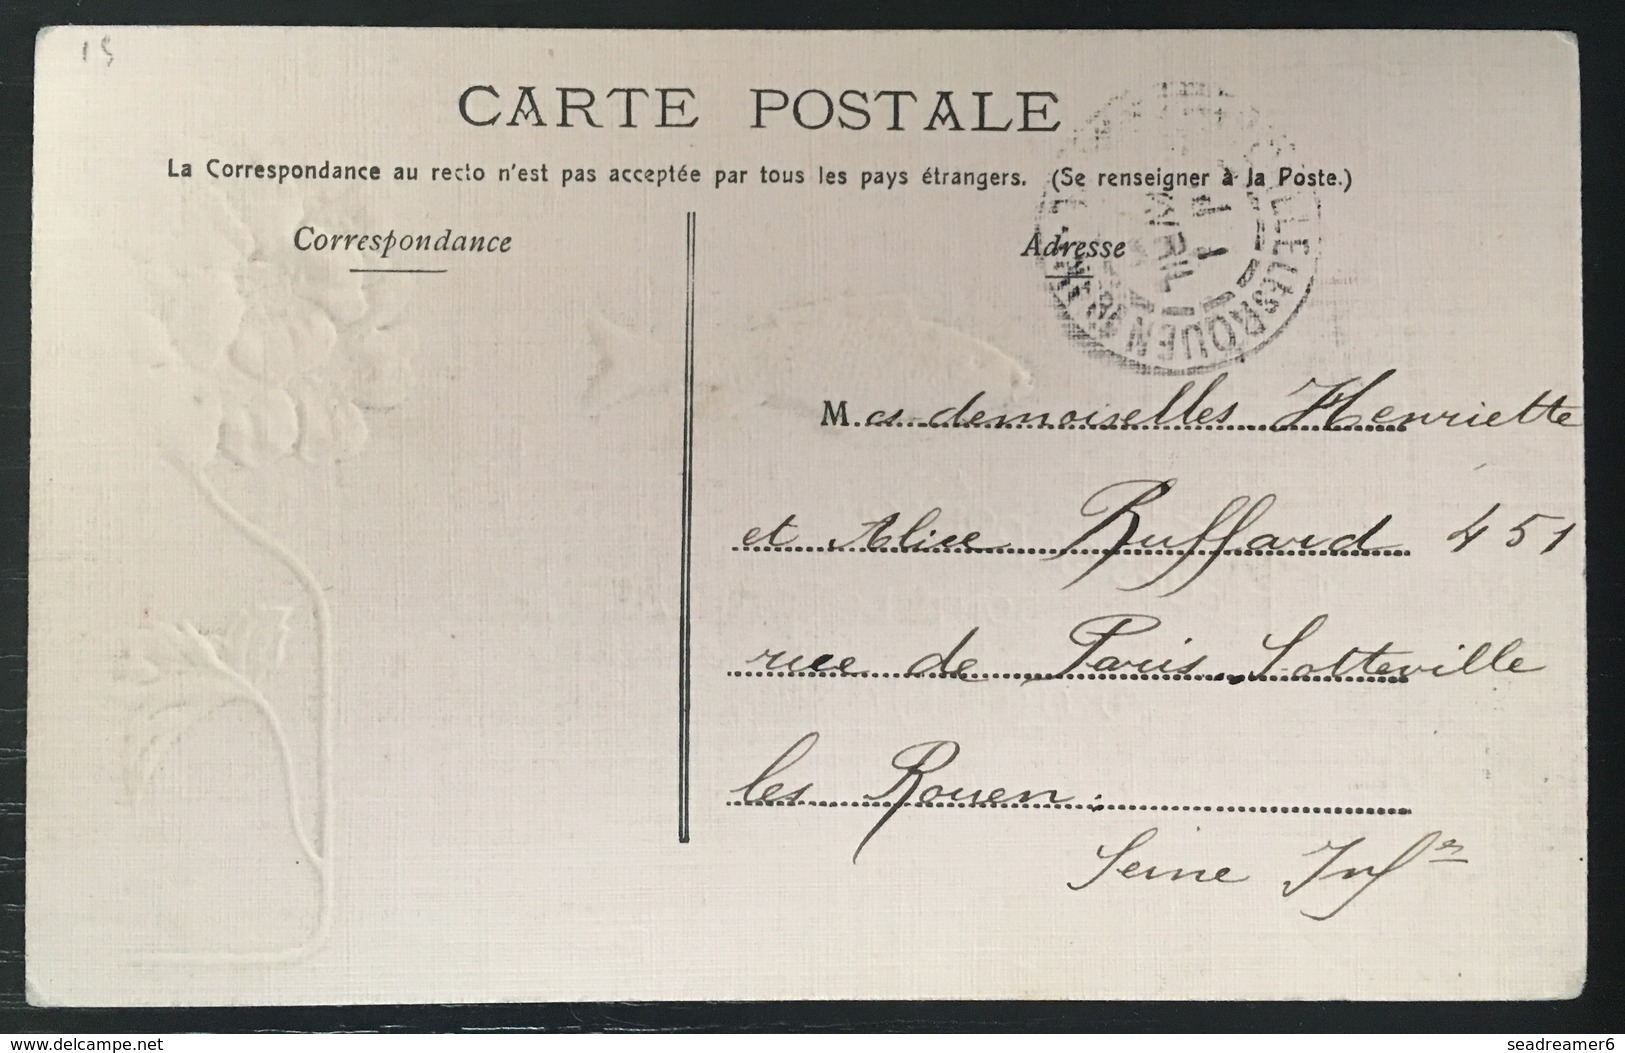 15
CARTE POSTALE
La Correspondance au recto n'est pas acceptée par tous les pays étrangers. (Se renseigner à la Poste.)
Correspondance
Adresse
AVRIL
LES ROUEN
Mes demoiselles Henriette
et Alice Ruffard 451
rue de Paris, Sotteville
les Rouen.
Seine Infre
www.delcampe.net
seadreamer6